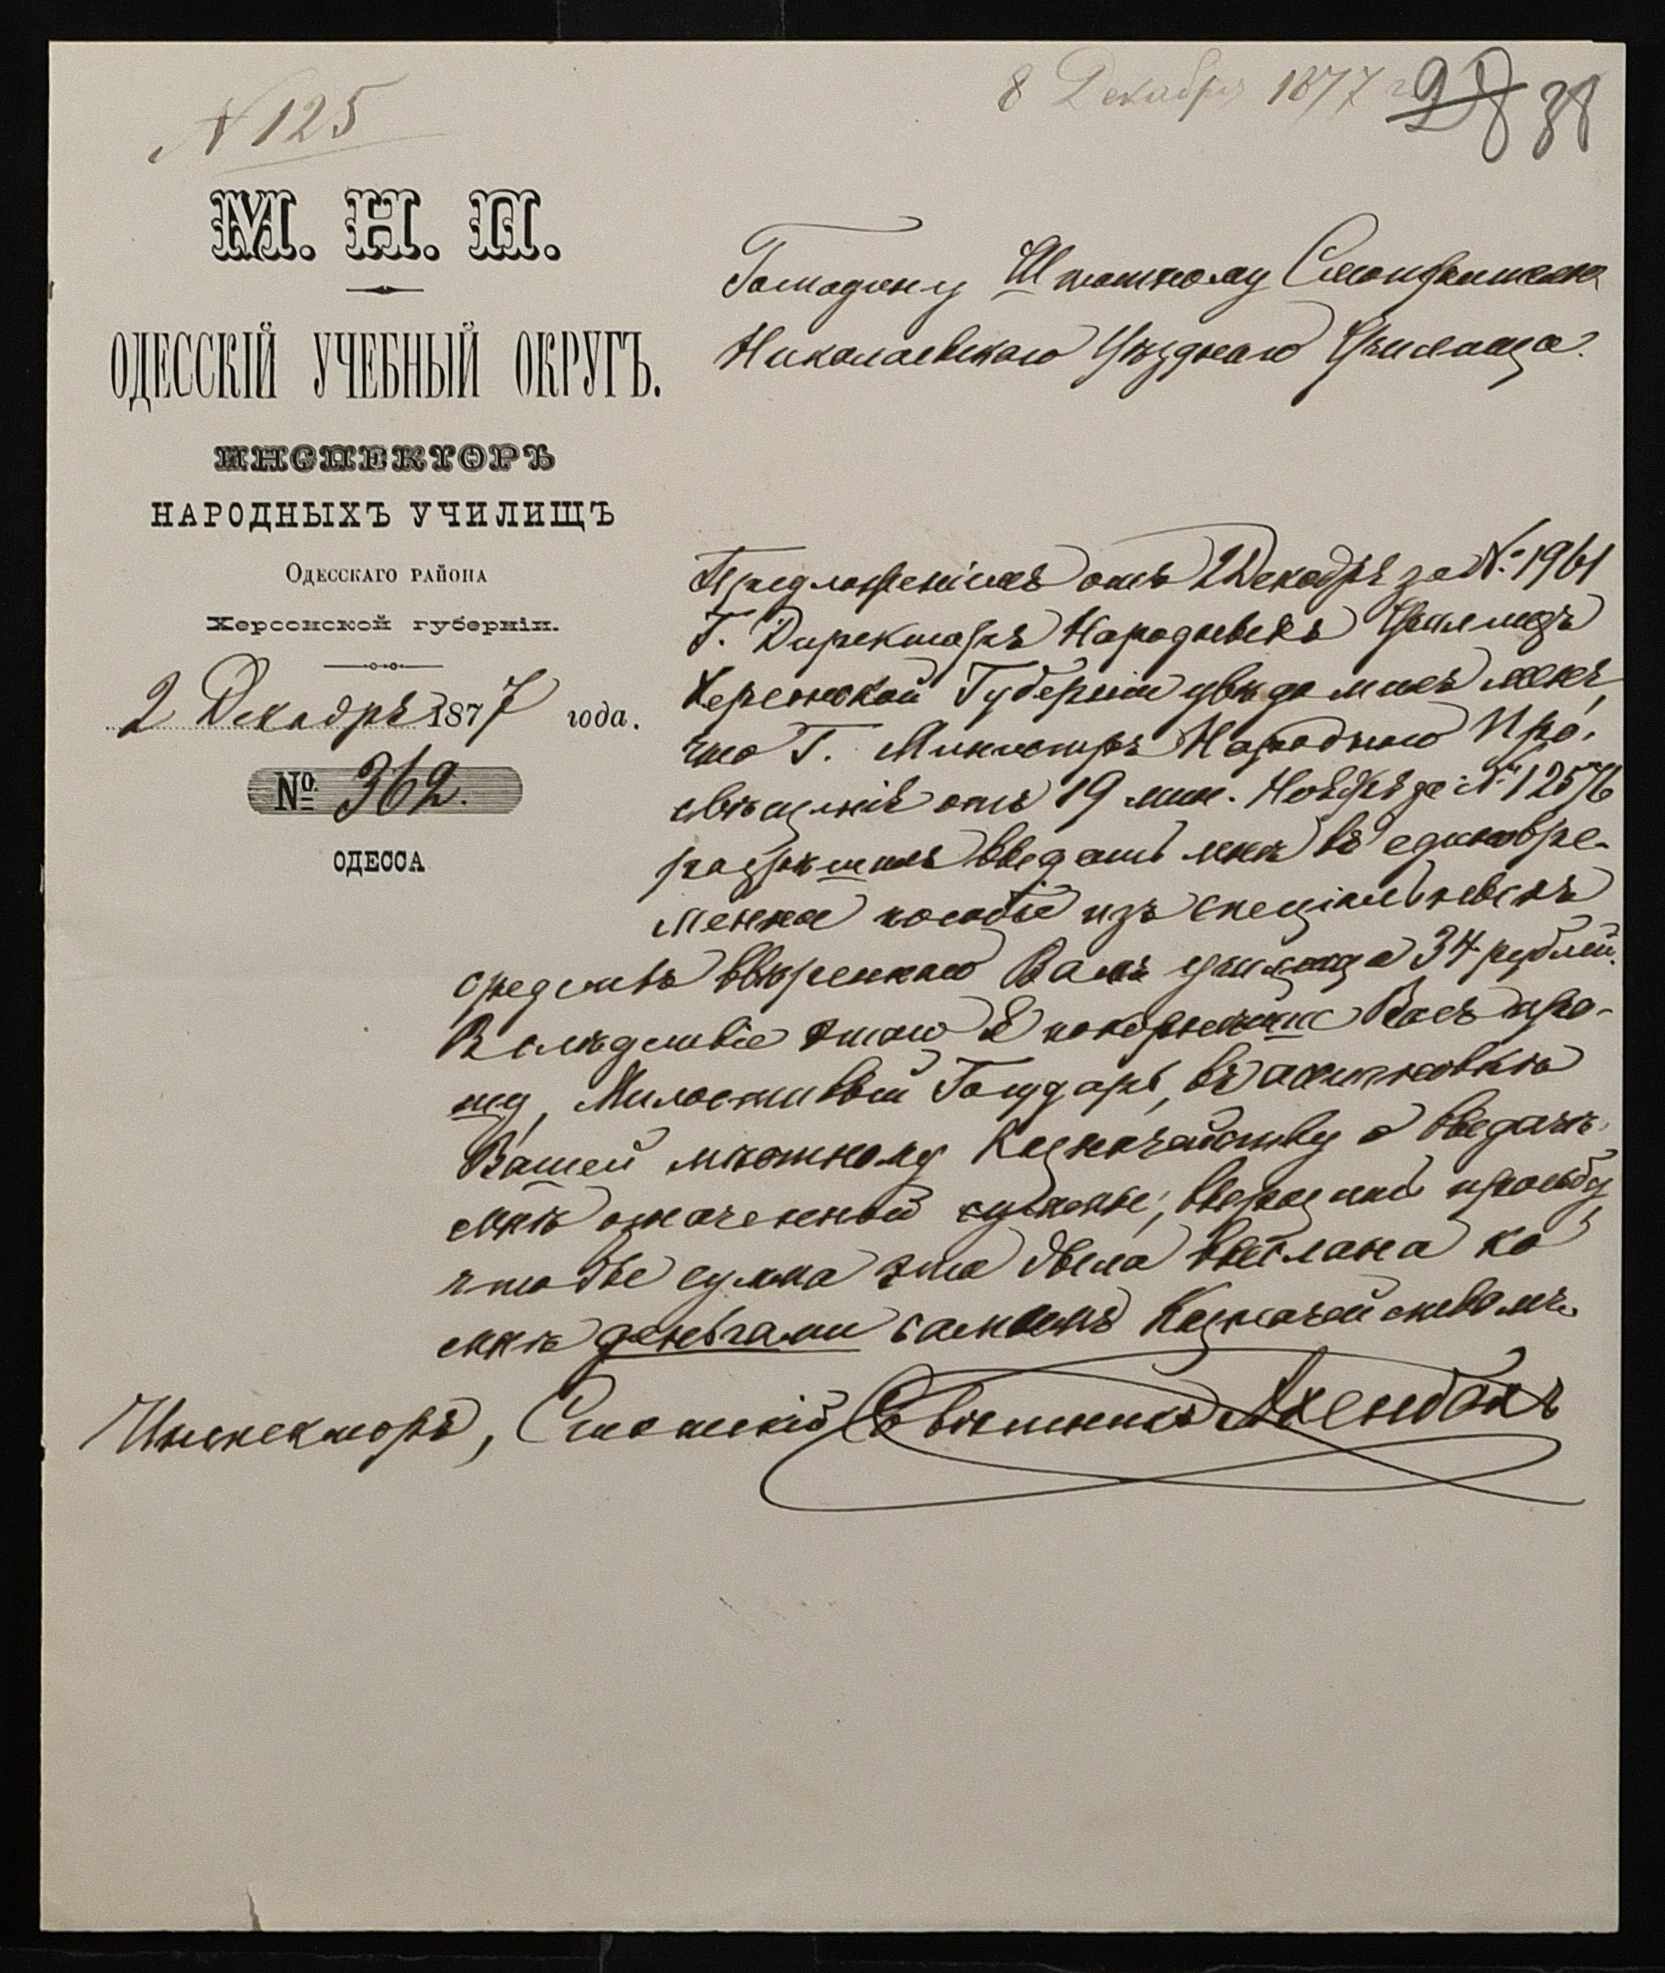 8 Декабря 1877 г.
28 38
N 125
М. Н. П.
ОДЕССКІЙ УЧЕБНЫЙ ОКРУГЪ.
ИНСПЕКТОРЪ
НАРОДНЫХЪ УЧИЛИЩЪ
Одесскаго района
Херсонской губерніи.
2 Декабря 1877 года.
№ 362.
ОДЕССА
Господину Штатному Смотрителю
Николаевскаго Уѣзднаго Училища.
Предложеніемъ отъ 2 Декабря за №. 1961
Г. Директоръ Народныхъ Училищъ
Херсонской Губерніи увѣдомилъ меня,
что Г. Министръ Народнаго Про-
свѣщенія отъ 19 мин. Ноября за № 12576
разрѣшилъ выдать мнѣ въ единовре-
менное пособіе изъ спеціальныхъ
средствъ ввѣреннаго Вамъ училища 34 рублей.
Вслѣдствіе этого я покорнѣйше Васъ про-
шу, Милостивый Государь, въ ассигновкѣ
Вашей мѣстному Казначейству о выдачѣ
мнѣ означенной суммы, выразить просьбу,
чтобы сумма эта была выслана ко
мнѣ деньгами самимъ Казначействомъ.
Инспекторъ, Статскій Совѣтникъ